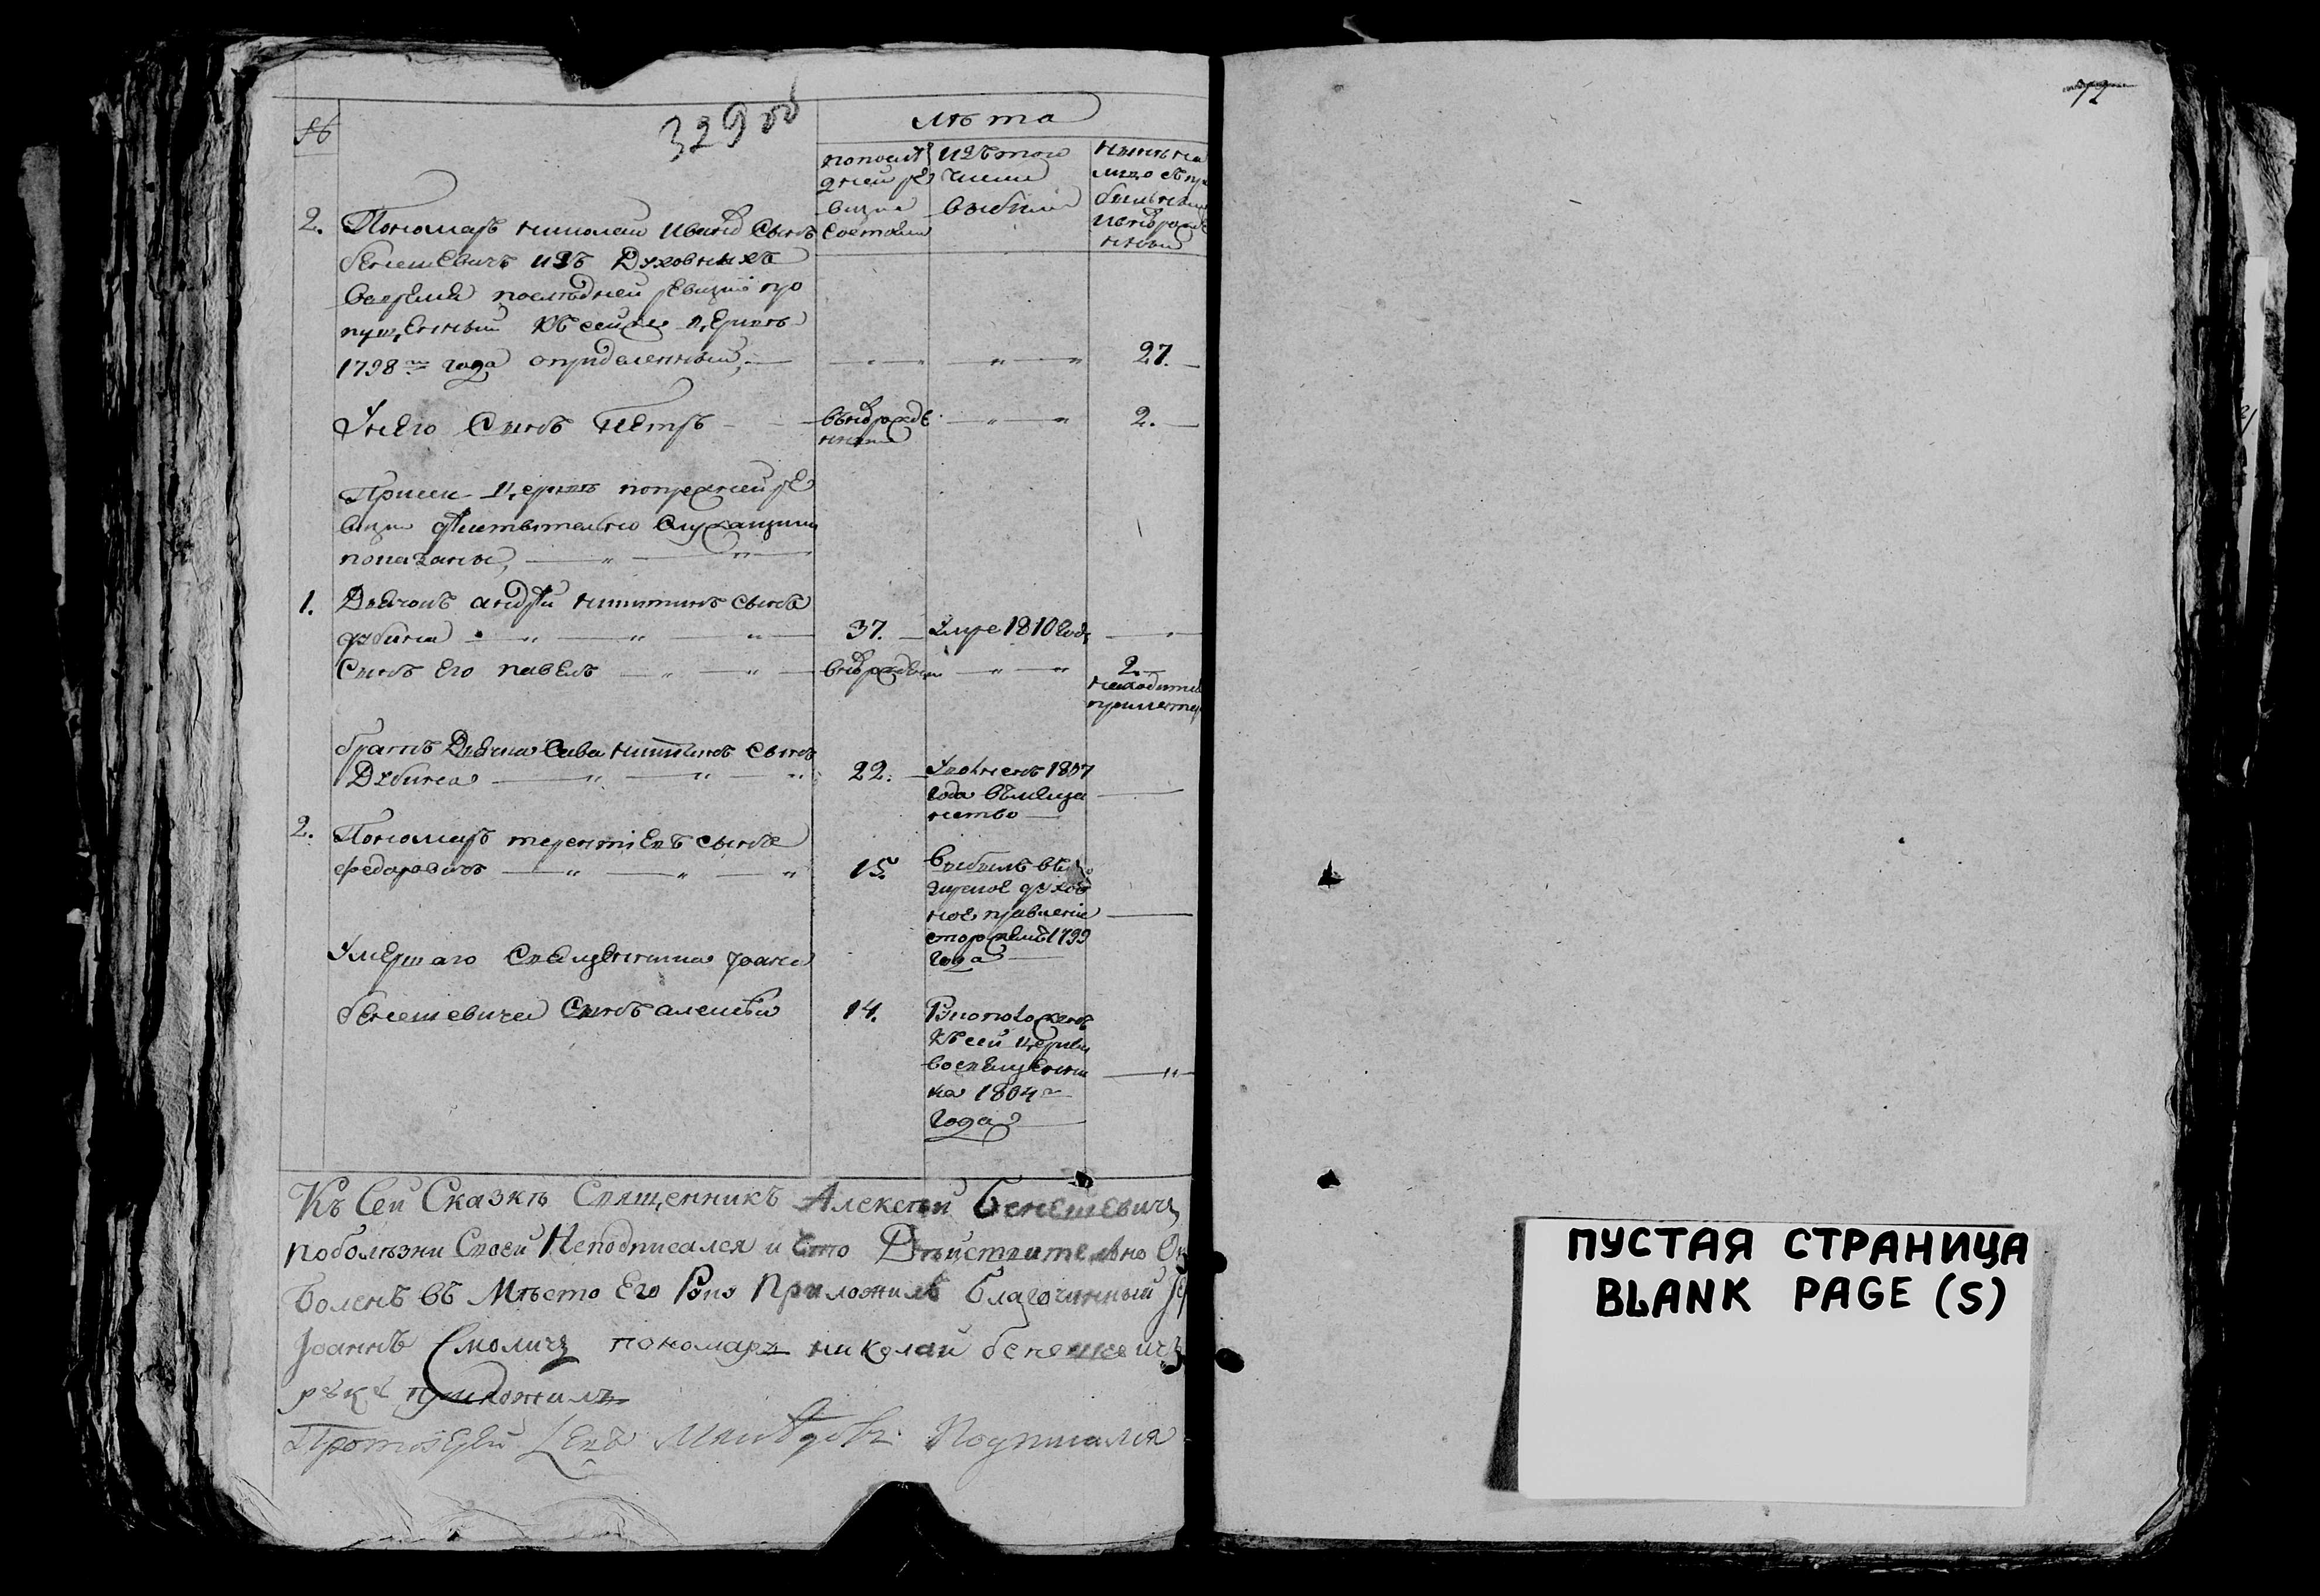 329 об
72
№
лѣта
попослѣ
дней ре
визіи
состояли
изъ того
числа
выбыли
нынѣ на
лицо съ пр
былыми
и новорожде
нными
2. Пономарь николай ивановъ сынъ
бенешевичъ изъ Духовныхъ
вовремя последней ревизіи про
пущенный къ сей же церкве
1798 года определенный, 27.
У него Сынъ Петръ вновьрожде
нный 2.
При сей церкве попрежней ре
визіи действительно служащими
показаны,
1. Дьячокъ андрей никитинъ сынъ
дубина 37. Умре 1810 года
Сынъ его павелъ вновьрожден 2.
находится
при матери
братъ Дьячка Сава никитинъ сынъ
Дубина 22. Уволненъ 1807
года въ меща
нство
2. Пономарь терентіевъ сынъ
федоровичъ 15. выбылъ въ
духов
ное правленіе
сторожемъ 1799
года
Умершаго Священника Іоанна
бенешевича Сынъ алексѣй 14. Рукоположенъ
къ сей церкви
во священни
ка 1804
года
Къ Сей Сказкѣ Священникъ Алексѣй Бенешевичъ
поболѣзни Своей Неподписался и что Дѣйствительно Он
боленъ въ Мѣсто Его Руку Приложилъ Благочинный Іе
Іоаннъ Смоличъ пономарь николай бенешевичъ
руку приложилъ
Протоіерей Левъ Подписался
ПУСТАЯ СТРАНИЦА
BLANK PAGE (S)